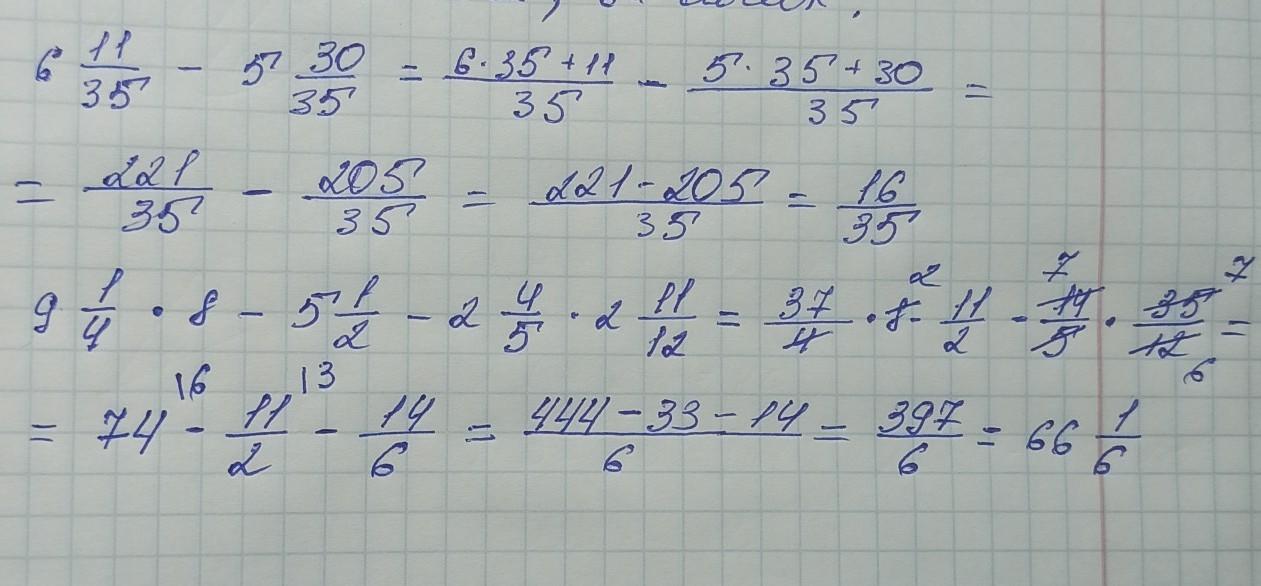 6 11/35 - 5 30/35 = (6·35+11)/35 - (5·35+30)/35 =
= 221/35 - 205/35 = (221-205)/35 = 16/35
9 1/4 · 8 - 5 1/2 - 2 4/5 · 2 11/12 = 37/4 · 8 2 - 11/2 - 14/5 7 · 35/12 7 6 =
= 74 |6 - 11/2 |3 - 14/6 = (444-33-14)/6 = 397/6 = 66 1/6